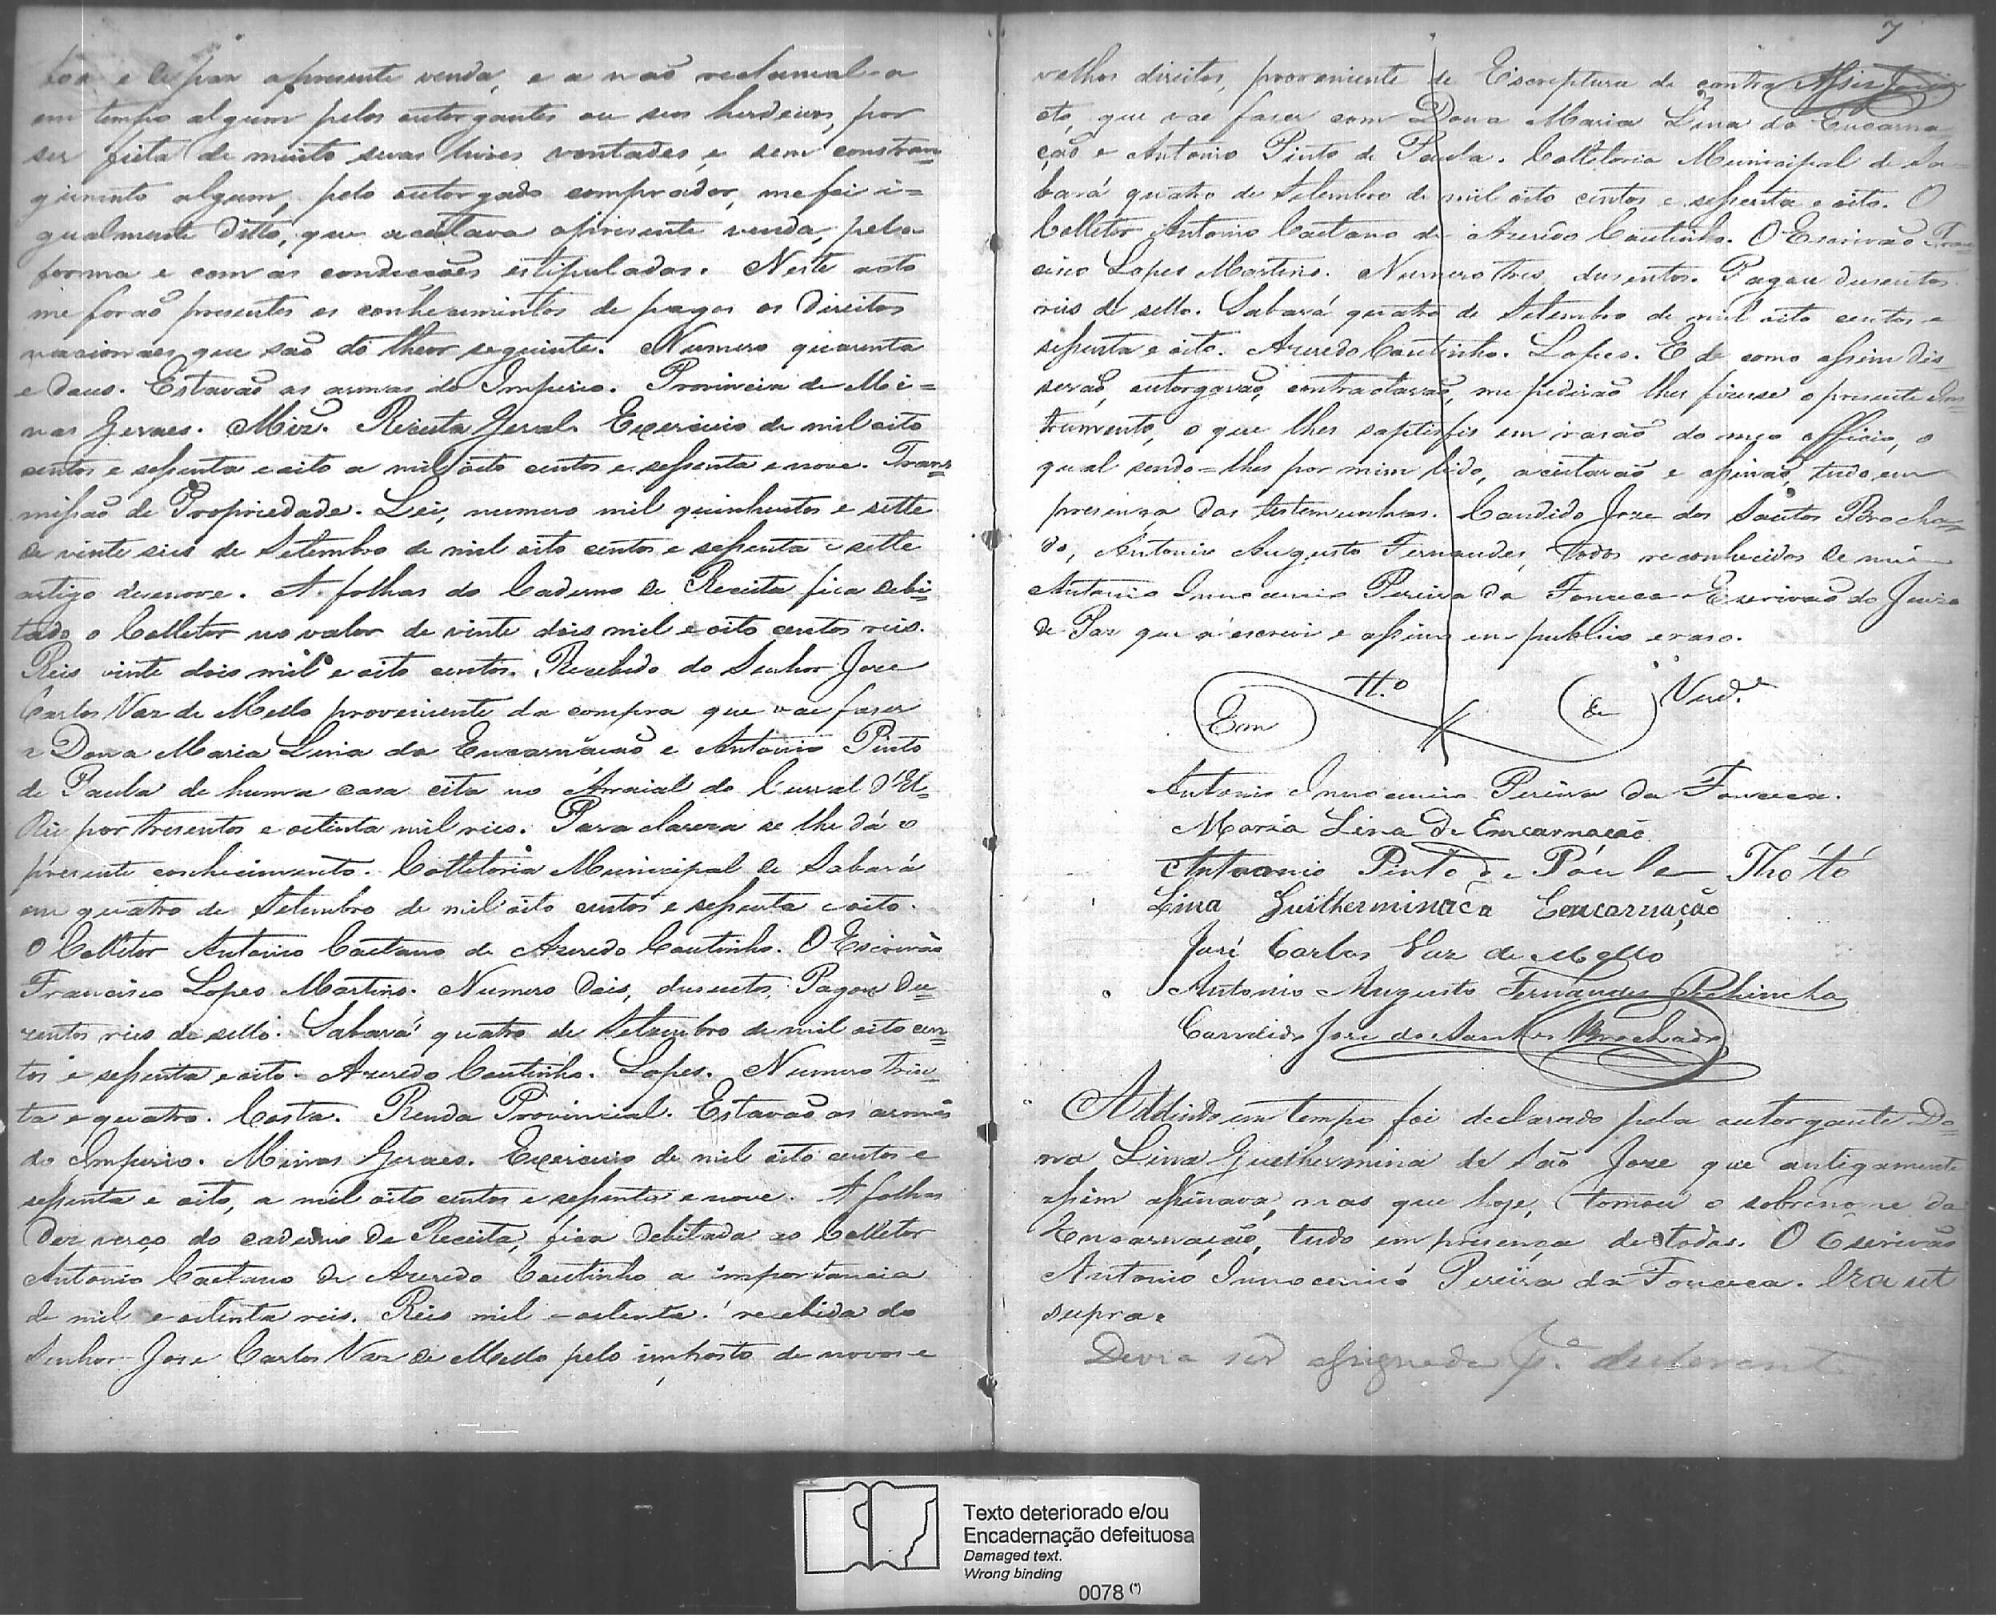 boa e de paz apresente venda, e a não reclamal-a
em tempo algum pelos outorgantes ou seus herdeiros, por
ser feita de muito suas livres vontades, e sem constran=
gimento algum, pelo outorgado comprador, me foi i=
gualmente ditto, que aceitava apresente venda, pela
forma e com as condicções estipuladas. Neste acto
me forão presentes os conhecimentos de pagos os direitos
nacionaes que são do theor seguinte. Numero quarenta
e dous. Estavão as armas do Imperio. Provincia de Mi=
nas Geraes. Receita Geral. Exercicio de mil oito
centos e sessenta e oito a mil oito centos e sessenta e nove. Trans=
missão de Propriedade. Lei, numero mil quinhentos e sette
de vinte seis de Setembro de mil oito centos e sessenta e sette
artigo desenove. A folhas do Caderno de Receita fica debi=
tado o Colletor no valor de vinte dois mil e oito centos reis.
Reis vinte dois mil e oito centos. Recebido do Senhor Joze
Carlos Vaz de Mello proveniente da compra que vae faser
a Dona Maria Lina da Encarnacão e Antonio Pinto
de Paula de huma casa cita no Arraial do Curral d'El=
Rei por tresentos e oitenta mil reis. Para claresa se lhe dá o
presente conhecimento. Colletoria Municipal de Sabará
em quatro de Setembro de mil oito centos e sessenta e oito.
O Colletor Antonio Caetano de Azeredo Coutinho. O Escrivão
Francisco Lopes Martins. Numero dois, dusentos. Pagou du=
zentos reis de sello. Sabará quatro de Setembro de mil oito cen=
tos e sessenta e oito. Azeredo Coutinho. Lopes. Numero trin=
ta e quatro. Costa. Renda Provincial. Estavão as armas
do Imperio. Minas Geraes. Exercicio de mil oito centos e
sessenta e oito, a mil oito centos e sessenta e nove. A folhas
dez verço do caderno de Receita, fica debitada ao Colletor
Antonio Caetano de Azeredo Coutinho a importancia
de mil e oitenta reis. Reis mil e oitenta. recebida do
Senhor Joze Carlos Vaz de Mello pelo imposto de novos e
7
velhos direitos, proveniente de Escreptura de contra
cto, que vae faser com Dona Maria Lina da Encarna=
ção e Antonio Pinto de Paula. Colletoria Municipal de Sa=
bará quatro de Setembro de mil oito centos e sessenta e oito. O
Colletor Antonio Caetano de Azeredo Coutinho. O Escrivão Fran=
cisco Lopes Martins. Numero tres, dusentos. Pagou dusentos
reis de sello. Sabará quatro de Setembro de mil oito centos e
sessenta e oito. Azeredo Coutinho. Lopes. E de como assim dis=
serão, outorgarão, contractarão, me pedirão lhes fizesse o presente Ins=
trumento, o que lhes sastisfis em rasão do meo officio, o
qual sendo=lhes por mim lido, aceitarão e assinão, tudo em
presença das testemunhas. Candido Joze dos Santos Brocha=
do, Antonio Augusto Fernandes, todos reconhecidos de mim
Antonio Innocencio Pereira da Fonseca Escrivão do Juizo
de Paz que o escrevi e assino em publico e raso.
Em Tt.º de Verd.e
Antonio Innocencio Pereira da Fonseca.
Maria Lina da Emcarnação
Antoonio Pinto de Páula Thótó
Lina Guilherminaca Eencarnação
José Carlos Vaz de Mello
Antonio Augusto Fernandes Pechincha
Candido Joze dos Santos Brochado
Addindo em tempo foi declarado pela outorgante Do=
na Lina Guilhermina de São Joze que antigamente
assim assinava, mas que hoje, tomou o sobrenome da
Encarnação, tudo em presença de todos. O Escrivão
Antonio Innocencio Pereira da Fonseca. Era ut
supra.
Devia ser assignada
Texto deteriorado e/ou
Encadernação defeituosa
Damaged text.
Wrong binding
0078 (*)